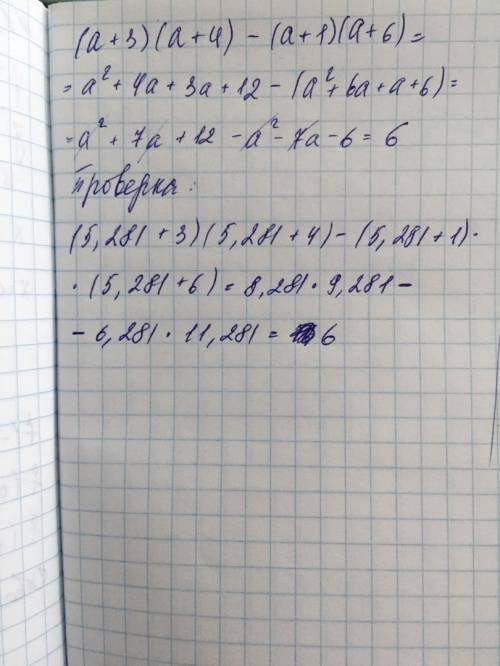 (a+3)(a+4) - (a+1)(a+6) =
= a² + 4a + 3a + 12 - (a² + 6a + a + 6) =
= a² + 7a + 12 - a² - 7a - 6 = 6
Проверка:
(5,281 + 3)(5,281 + 4) - (5,281 + 1) ·
· (5,281 + 6) = 8,281 · 9,281 -
- 6,281 · 11,281 = 6